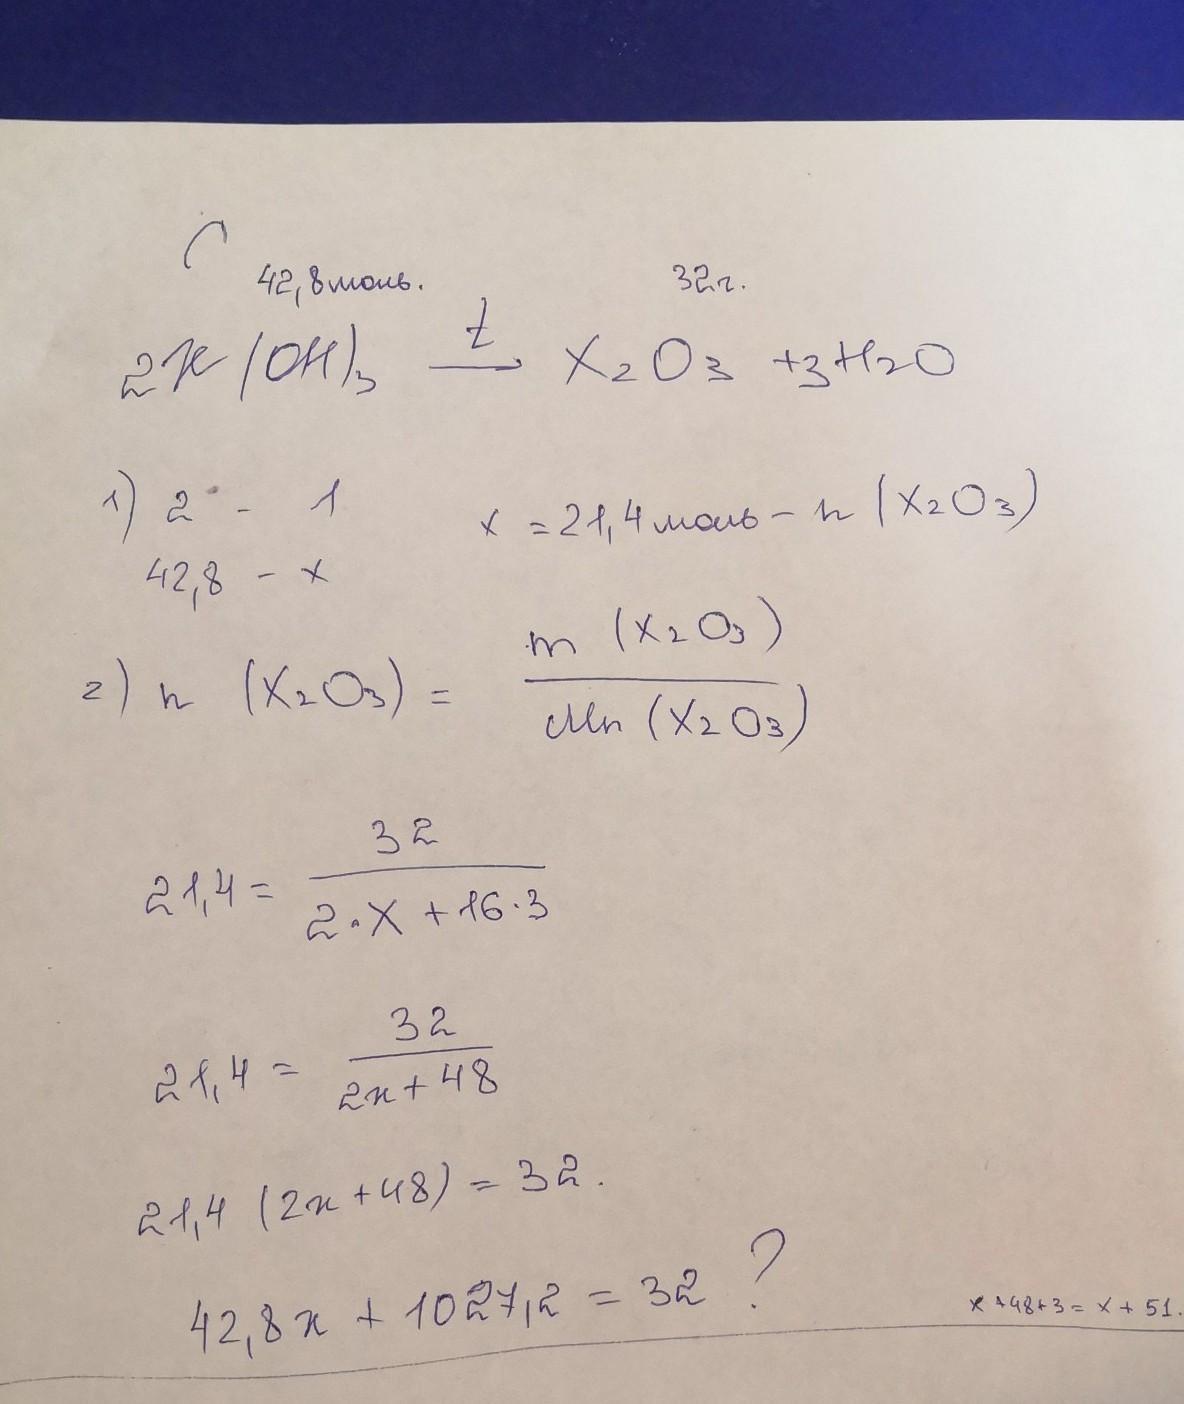 42,8 моль. 32г.
2X(OH)3 t→ X2O3 + 3H2O
1) 2 - 1 x = 21,4 моль - n (X2O3)
42,8 - x
2) n (X2O3) = m (X2O3) / Mr (X2O3)
21,4 = 32 / 2·X + 16·3
21,4 = 32 / 2x + 48
21,4 (2x + 48) = 32.
42,8x + 1027,2 = 32 ?
x + 48 + 3 = x + 51.